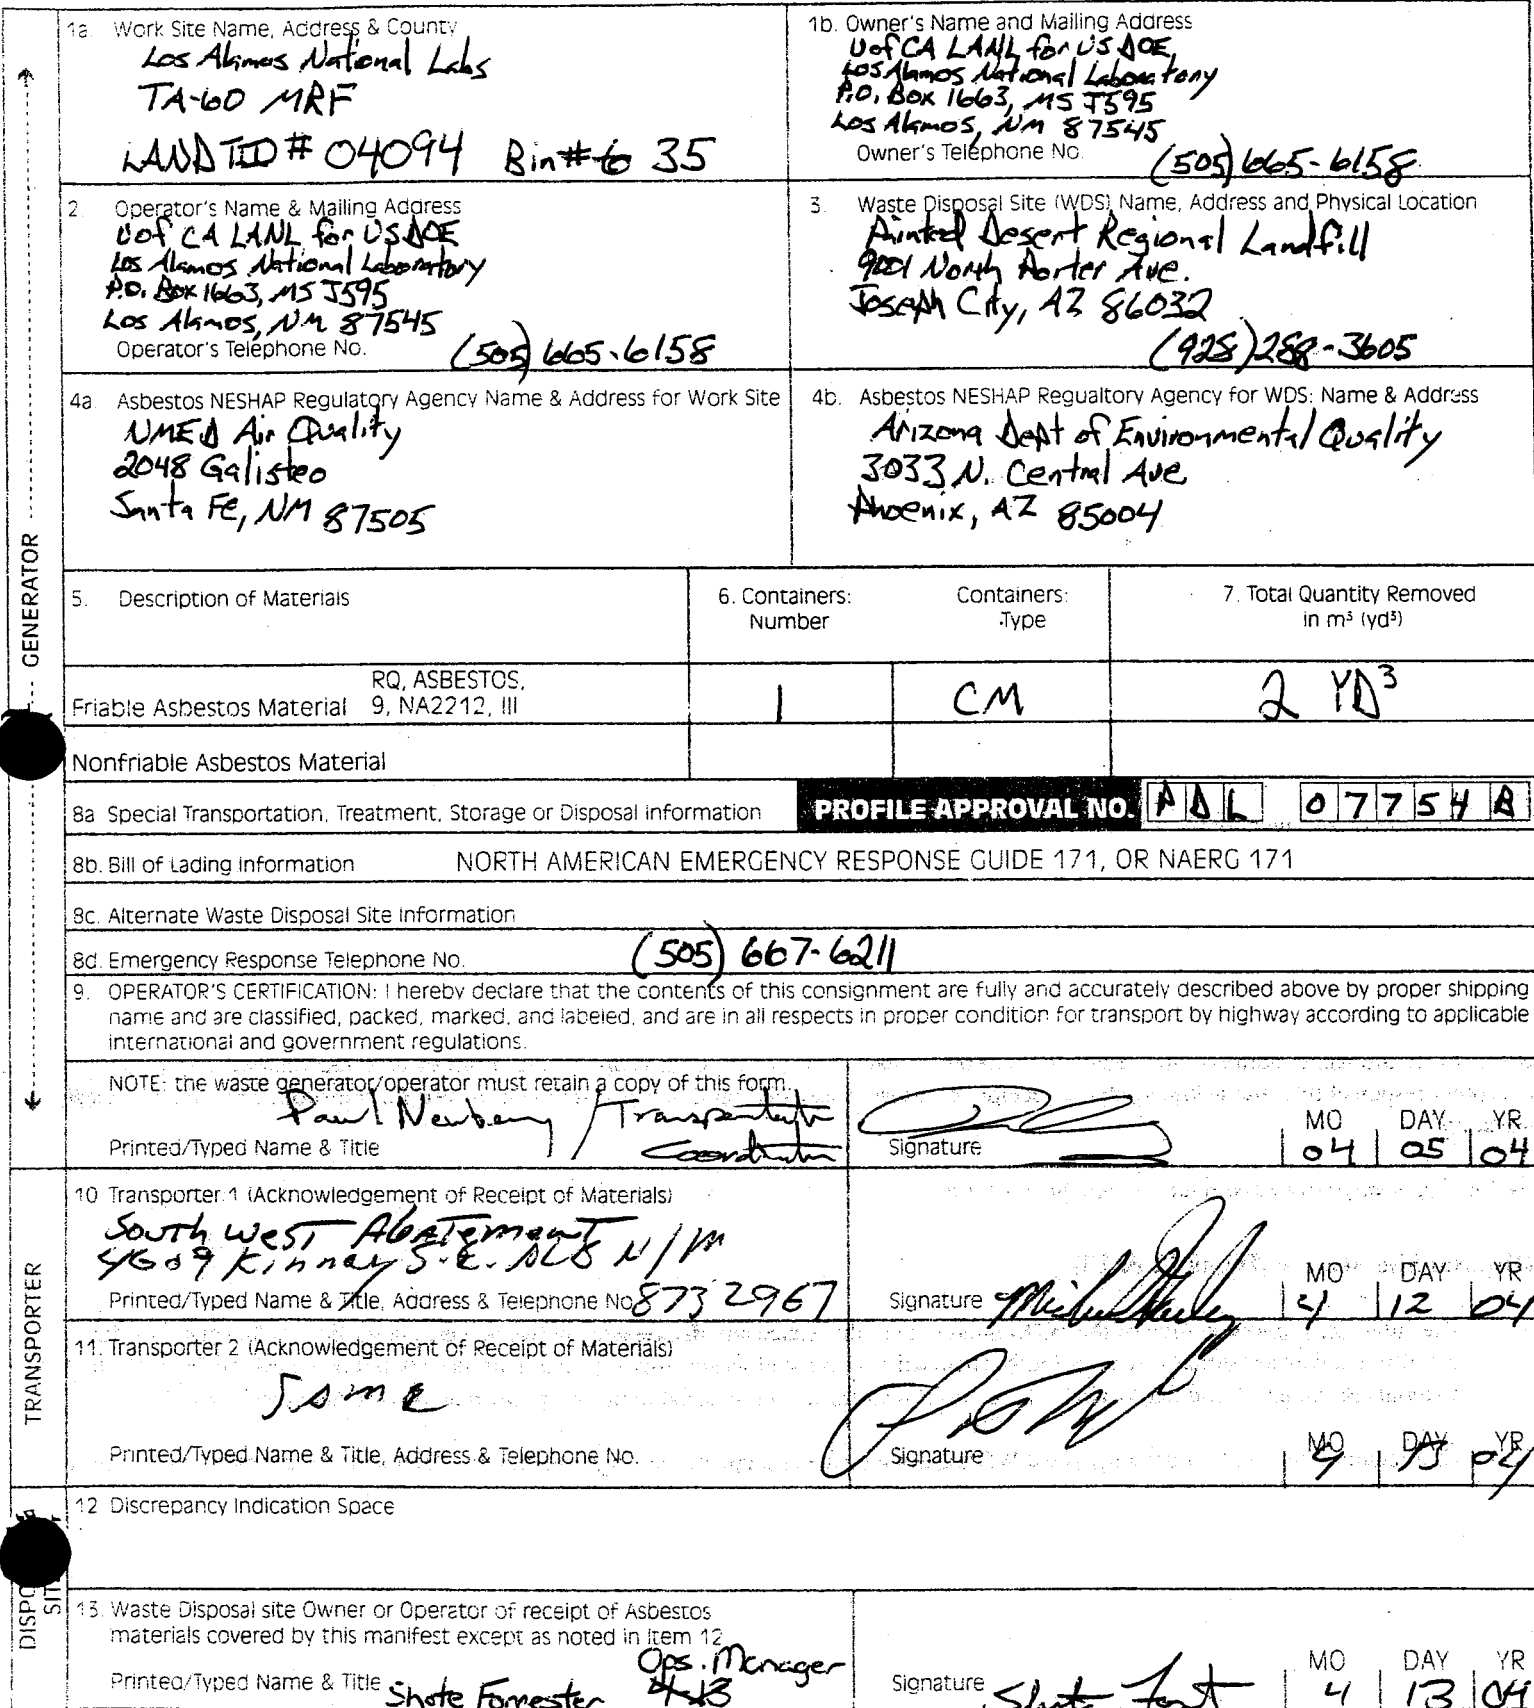 1a. Work Site Name, Address & County
Los Alamos National Labs
TA-60 MRF
LANDTID# 04094 Bin# to 35
1b. Owner's Name and Mailing Address
U of CA LANL for US DOE,
Los Alamos National Laboratory
P.O. Box 1663, MS J595
Los Alamos, NM 87545
Owner's Telephone No. (505) 665-6158
2. Operator's Name & Mailing Address
U of CA LANL for US DOE
Los Alamos National Laboratory
P.O. Box 1663, MS J595
Los Alamos, NM 87545
Operator's Telephone No. (505) 665-6158
3. Waste Disposal Site (WDS) Name, Address and Physical Location
Painted Desert Regional Landfill
9001 North Porter Ave.
Joseph City, AZ 86032
(928) 288-3605
4a. Asbestos NESHAP Regulatory Agency Name & Address for Work Site
NMED Air Quality
2048 Galisteo
Santa Fe, NM 87505
4b. Asbestos NESHAP Regualtory Agency for WDS: Name & Address
Arizona Dept of Environmental Quality
3033 N. Central Ave
Phoenix, AZ 85004
GENERATOR
5. Description of Materials
6. Containers: Number
Containers: Type
7. Total Quantity Removed in m³ (yd³)
RQ, ASBESTOS,
Friable Asbestos Material 9, NA2212, III
1 CM 2 YD³
Nonfriable Asbestos Material
8a Special Transportation, Treatment, Storage or Disposal information PROFILE APPROVAL NO. PDL 07754B
8b. Bill of Lading Information NORTH AMERICAN EMERGENCY RESPONSE GUIDE 171, OR NAERG 171
8c. Alternate Waste Disposal Site Information
8d. Emergency Response Telephone No. (505) 667-6211
9. OPERATOR'S CERTIFICATION: I hereby declare that the contents of this consignment are fully and accurately described above by proper shipping
name and are classified, packed, marked, and labeled, and are in all respects in proper condition for transport by highway according to applicable
international and government regulations.
NOTE: the waste generator/operator must retain a copy of this form.
Paul Newberry / Transportation
Coordinator
Printed/Typed Name & Title
Signature
MO DAY YR
04 05 04
TRANSPORTER
10 Transporter 1 (Acknowledgement of Receipt of Materials)
South West Abatement
4609 Kinney S.E. ALB N/M
Printed/Typed Name & Title, Address & Telephone No. 873 2967
Signature
MO DAY YR
4 12 04
11. Transporter 2 (Acknowledgement of Receipt of Materials)
Same
Printed/Typed Name & Title, Address & Telephone No.
Signature
MO DAY YR
4 13 04
12 Discrepancy Indication Space
13. Waste Disposal site Owner or Operator of receipt of Asbestos
materials covered by this manifest except as noted in Item 12
Ops. Manager
Printed/Typed Name & Title Shote Forrester
Signature
MO DAY YR
4 13 04